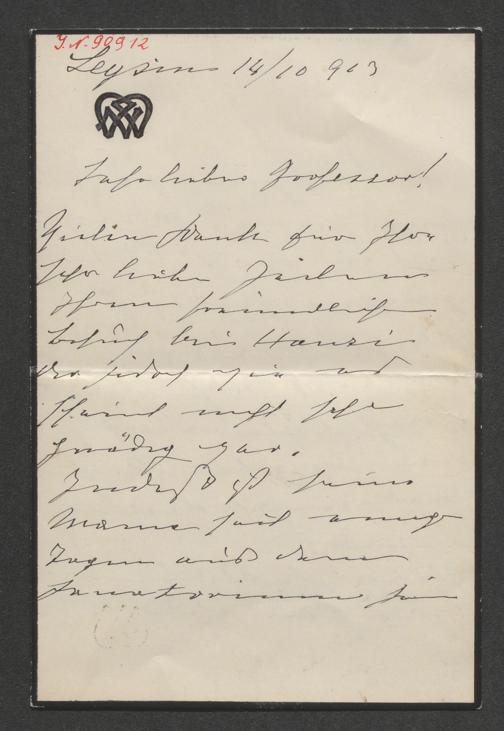 J.N. 90912
Leysin 14/10 913
Sehr lieber Professor!
Vielen Dank für Ihre
sehr lieben Zeilen
Ihren freundlichen
Besuch bei Hansi
der jedoch wie
scheint nicht sehr
gnädig war.
Indeß ist seine
Mama seit einigen
Tagen aus dem
Sanatorium